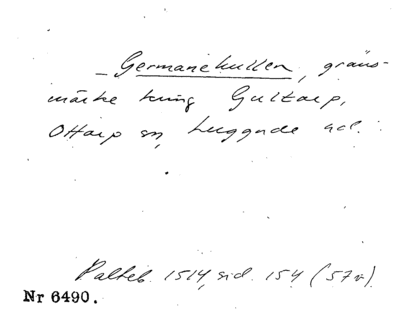 – Germanekullen, gräns-
märke kring Gultarp,
Ottarp sn, Luggude hd.
Palteb. 1514, sid. 154 (57v).
Nr 6490.